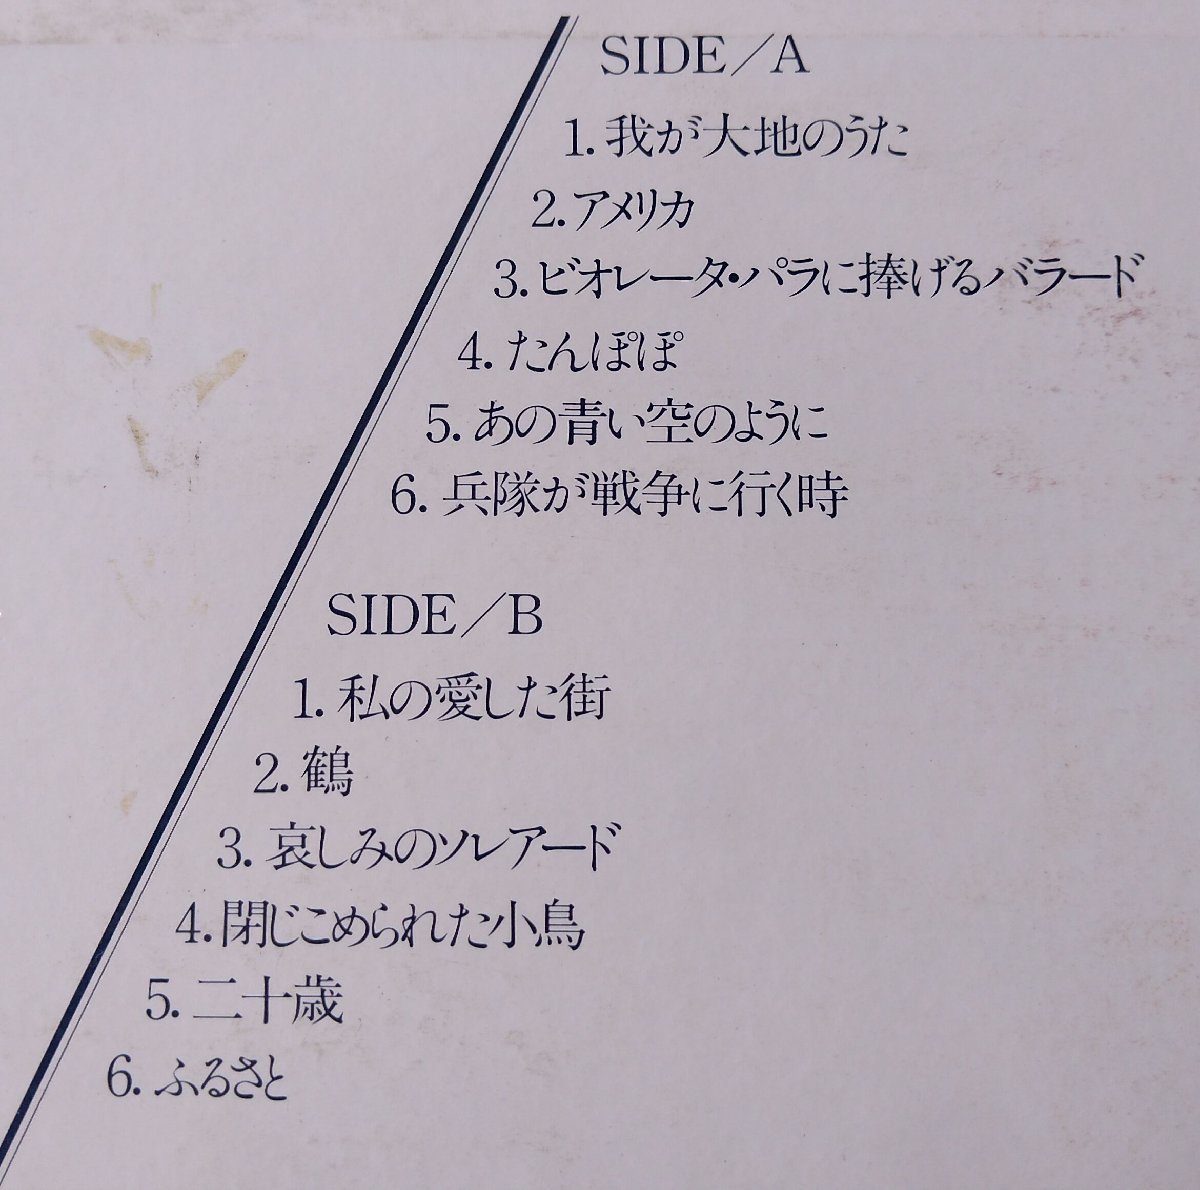 SIDE／A
1. 我が大地のうた
2. アメリカ
3. ビオレータ・パラに捧げるバラード
4. たんぽぽ
5. あの青い空のように
6. 兵隊が戦争に行く時
SIDE／B
1. 私の愛した街
2. 鶴
3. 哀しみのソレアード
4. 閉じこめられた小鳥
5. 二十歳
6. ふるさと